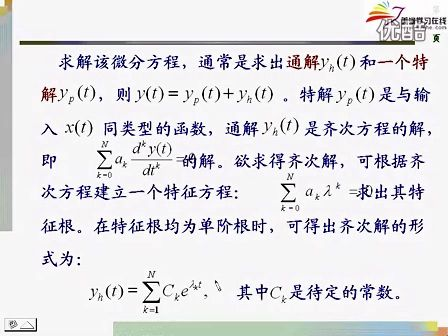 酷学习在线
优酷
页
求解该微分方程，通常是求出通解y_h(t)和一个特
解y_p(t)，则 y(t) = y_p(t) + y_h(t) 。特解y_p(t)是与输
入 x(t) 同类型的函数，通解 y_h(t)是齐次方程的解，
即 \sum_{k=0}^{N} a_k \frac{d^k y(t)}{dt^k} = 的解。欲求得齐次解，可根据齐
次方程建立一个特征方程： \sum_{k=0}^{N} a_k λ^k = 求出其特
征根。在特征根均为单阶根时，可得出齐次解的形
式为：
y_h(t) = \sum_{k=1}^{N} C_k e^{λ_k t}, 其中C_k是待定的常数。